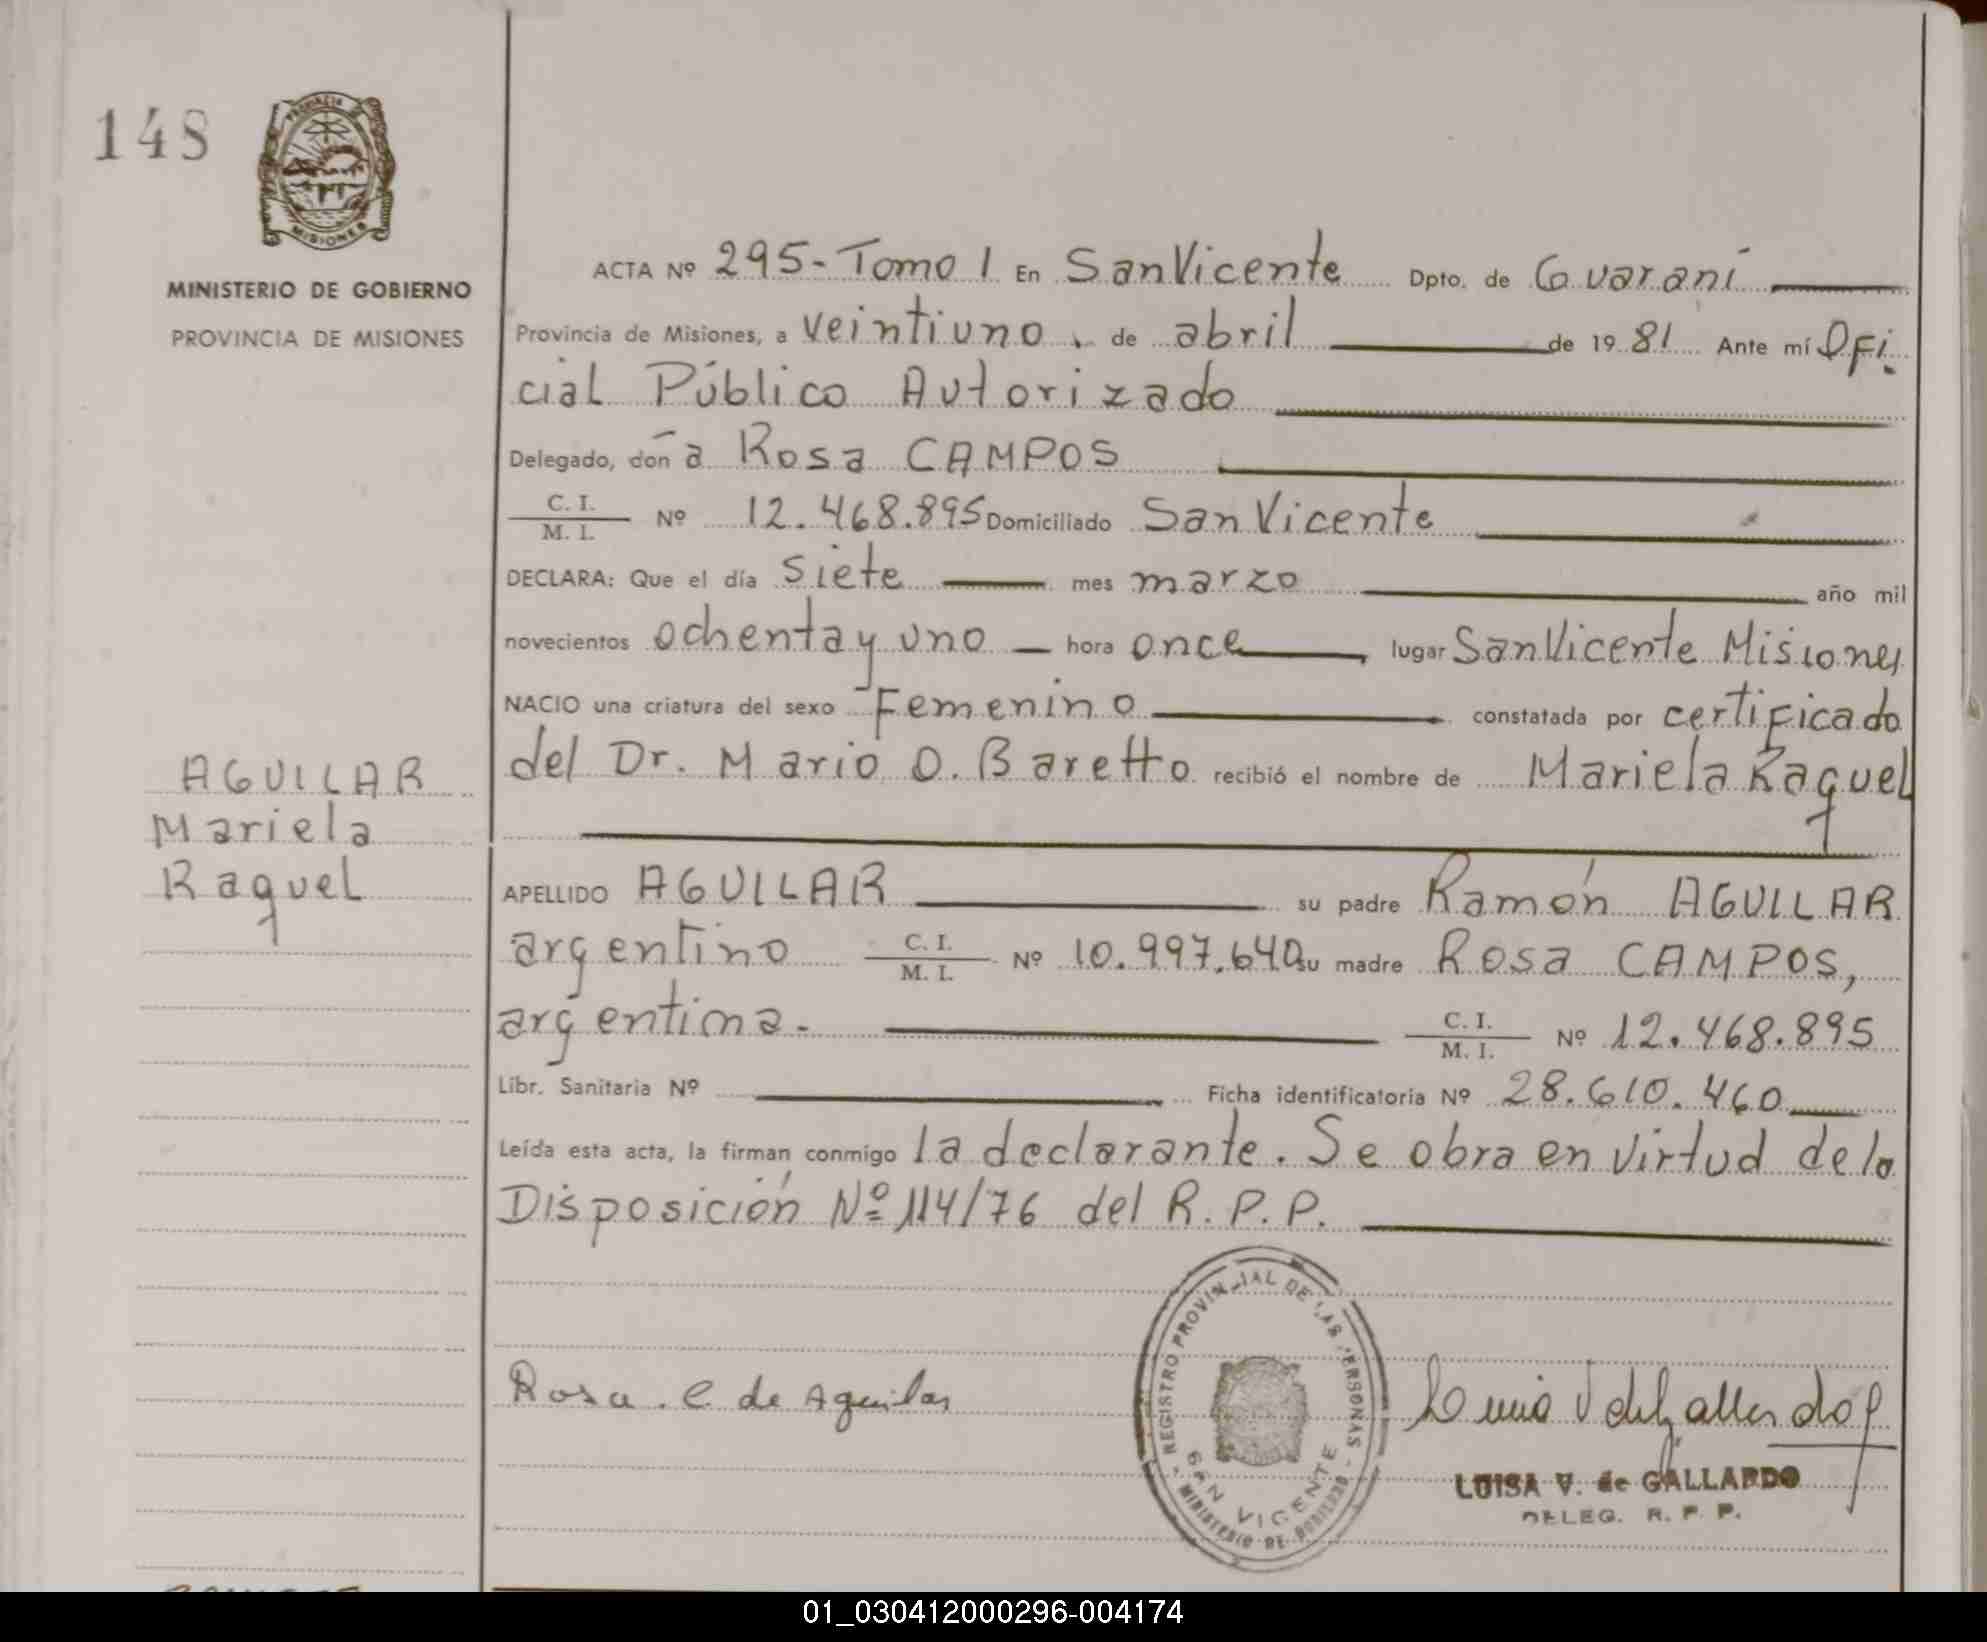 148
PROVINCIA DE
MISIONES
MINISTERIO DE GOBIERNO
PROVINCIA DE MISIONES
ACTA Nº 295-Tomo I En San Vicente Dpto. de Guaraní
Provincia de Misiones, a veintiuno, de abril de 1981 Ante mí Ofi
cial Público Autorizado
Delegado, doña Rosa CAMPOS
C. I. / M. I. Nº 12.468.895 Domiciliado San Vicente
DECLARA: Que el día siete mes marzo año mil
novecientos ochenta y uno hora once lugar San Vicente Misiones
NACIO una criatura del sexo Femenino constatada por certificado
del Dr. Mario O. Baretto recibió el nombre de Mariela Raquel
AGUILAR
Mariela
Raquel
APELLIDO AGUILAR su padre Ramón AGUILAR
argentino C. I. / M. I. Nº 10.997.640 su madre Rosa CAMPOS,
argentina. C. I. / M. I. Nº 12.468.895
Libr. Sanitaria Nº Ficha identificatoria Nº 28.610.460
Leída esta acta, la firman conmigo la declarante. Se obra en virtud de la
Disposición Nº 114/76 del R. P. P.
REGISTRO PROVINCIAL DE LAS PERSONAS
SAN VICENTE
MINISTERIO DE GOBIERNO
Rosa. C. de Aguilar
LUISA V. de GALLARDO
DELEG. R. P. P.
01_030412000296-004174